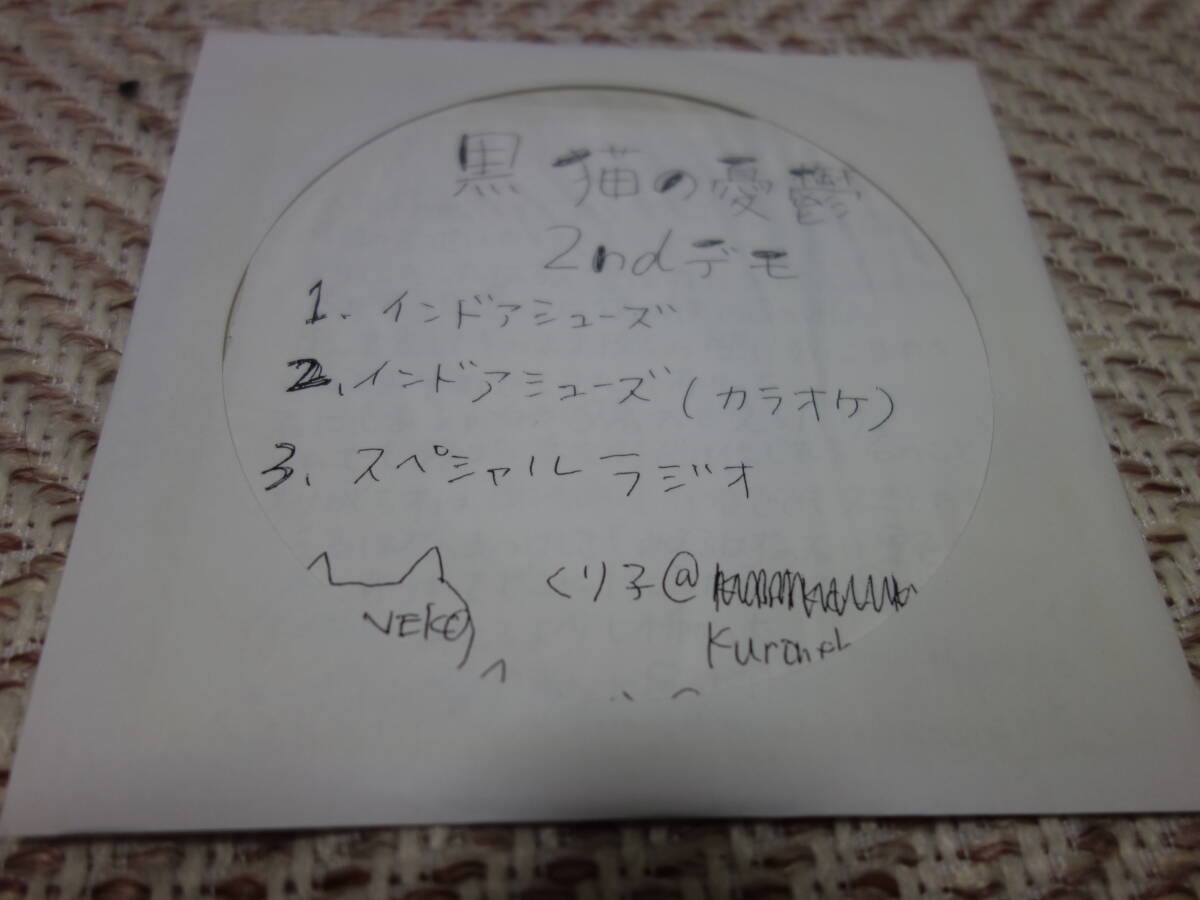 黒猫の憂鬱
2ndデモ
1. インドアシューズ
2. インドアシューズ(カラオケ)
3. スペシャルラジオ
NEKO
くり子@